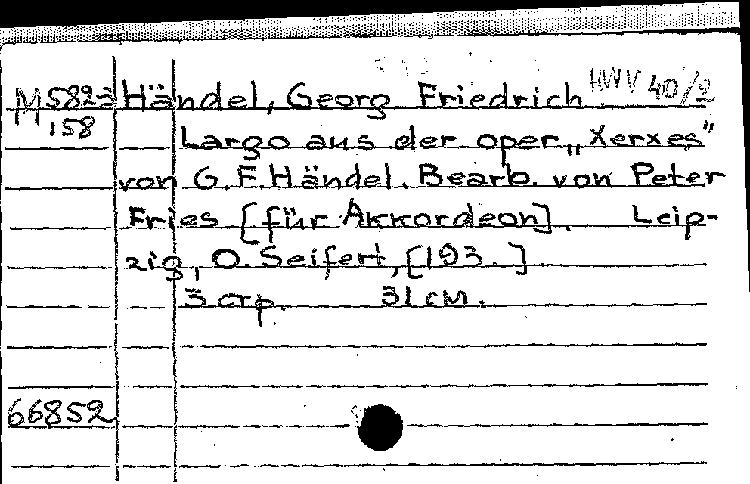 M 5823 Händel, Georg Friedrich HWV 40/2
158 Largo aus der oper „Xerxes"
von G.F.Händel. Bearb. von Peter
Fries [für Akkordeon]. Leip-
zig, O. Seifert, [193. ]
3 стр. 31 см.
66852